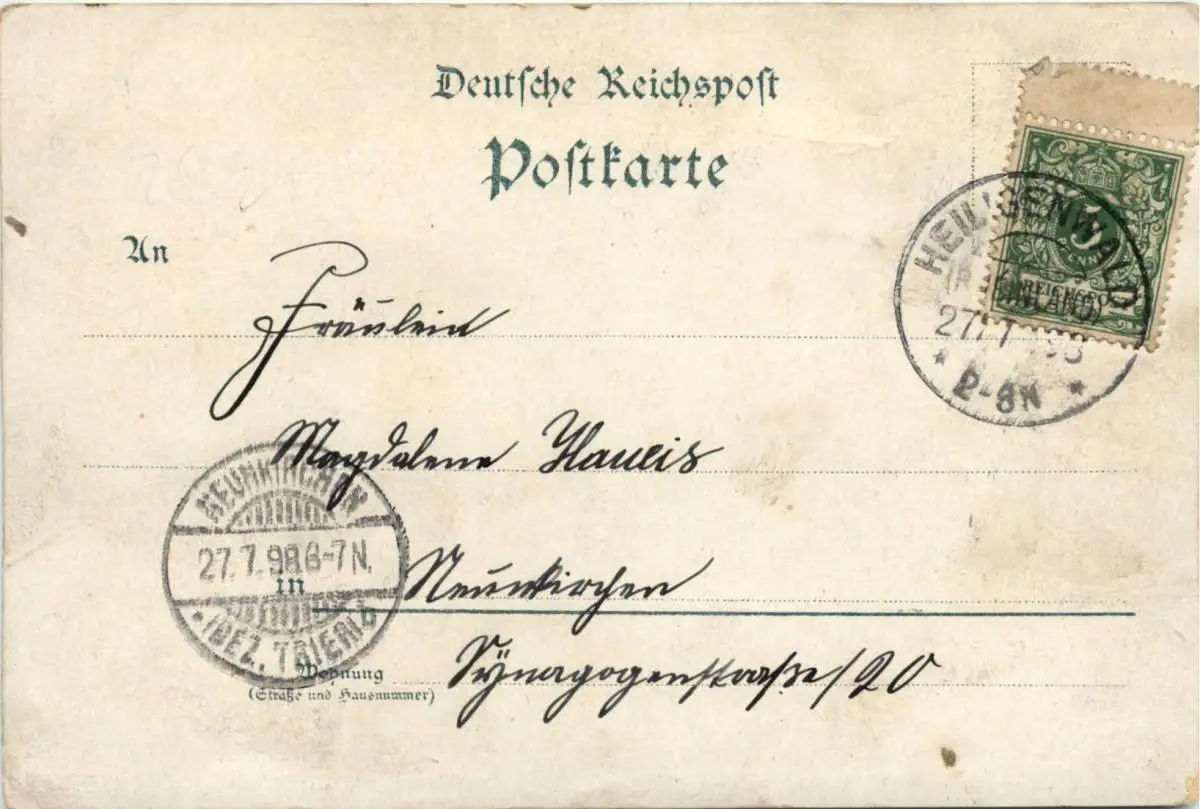 Deutsche Reichspost
Postkarte
An
Fräulein
Magdalene
Neunkirchen
in
Synagogenstraße 20
Wohnung
(Straße und Hausnummer)
HEILIGENWALD
(RHEINLAND)
27/7 98
* 2-3N *
5
PFENNIG
REICHSPOST
NEUNKIRCHEN
27.7.98.6-7N.
*(BEZ. TRIER) b